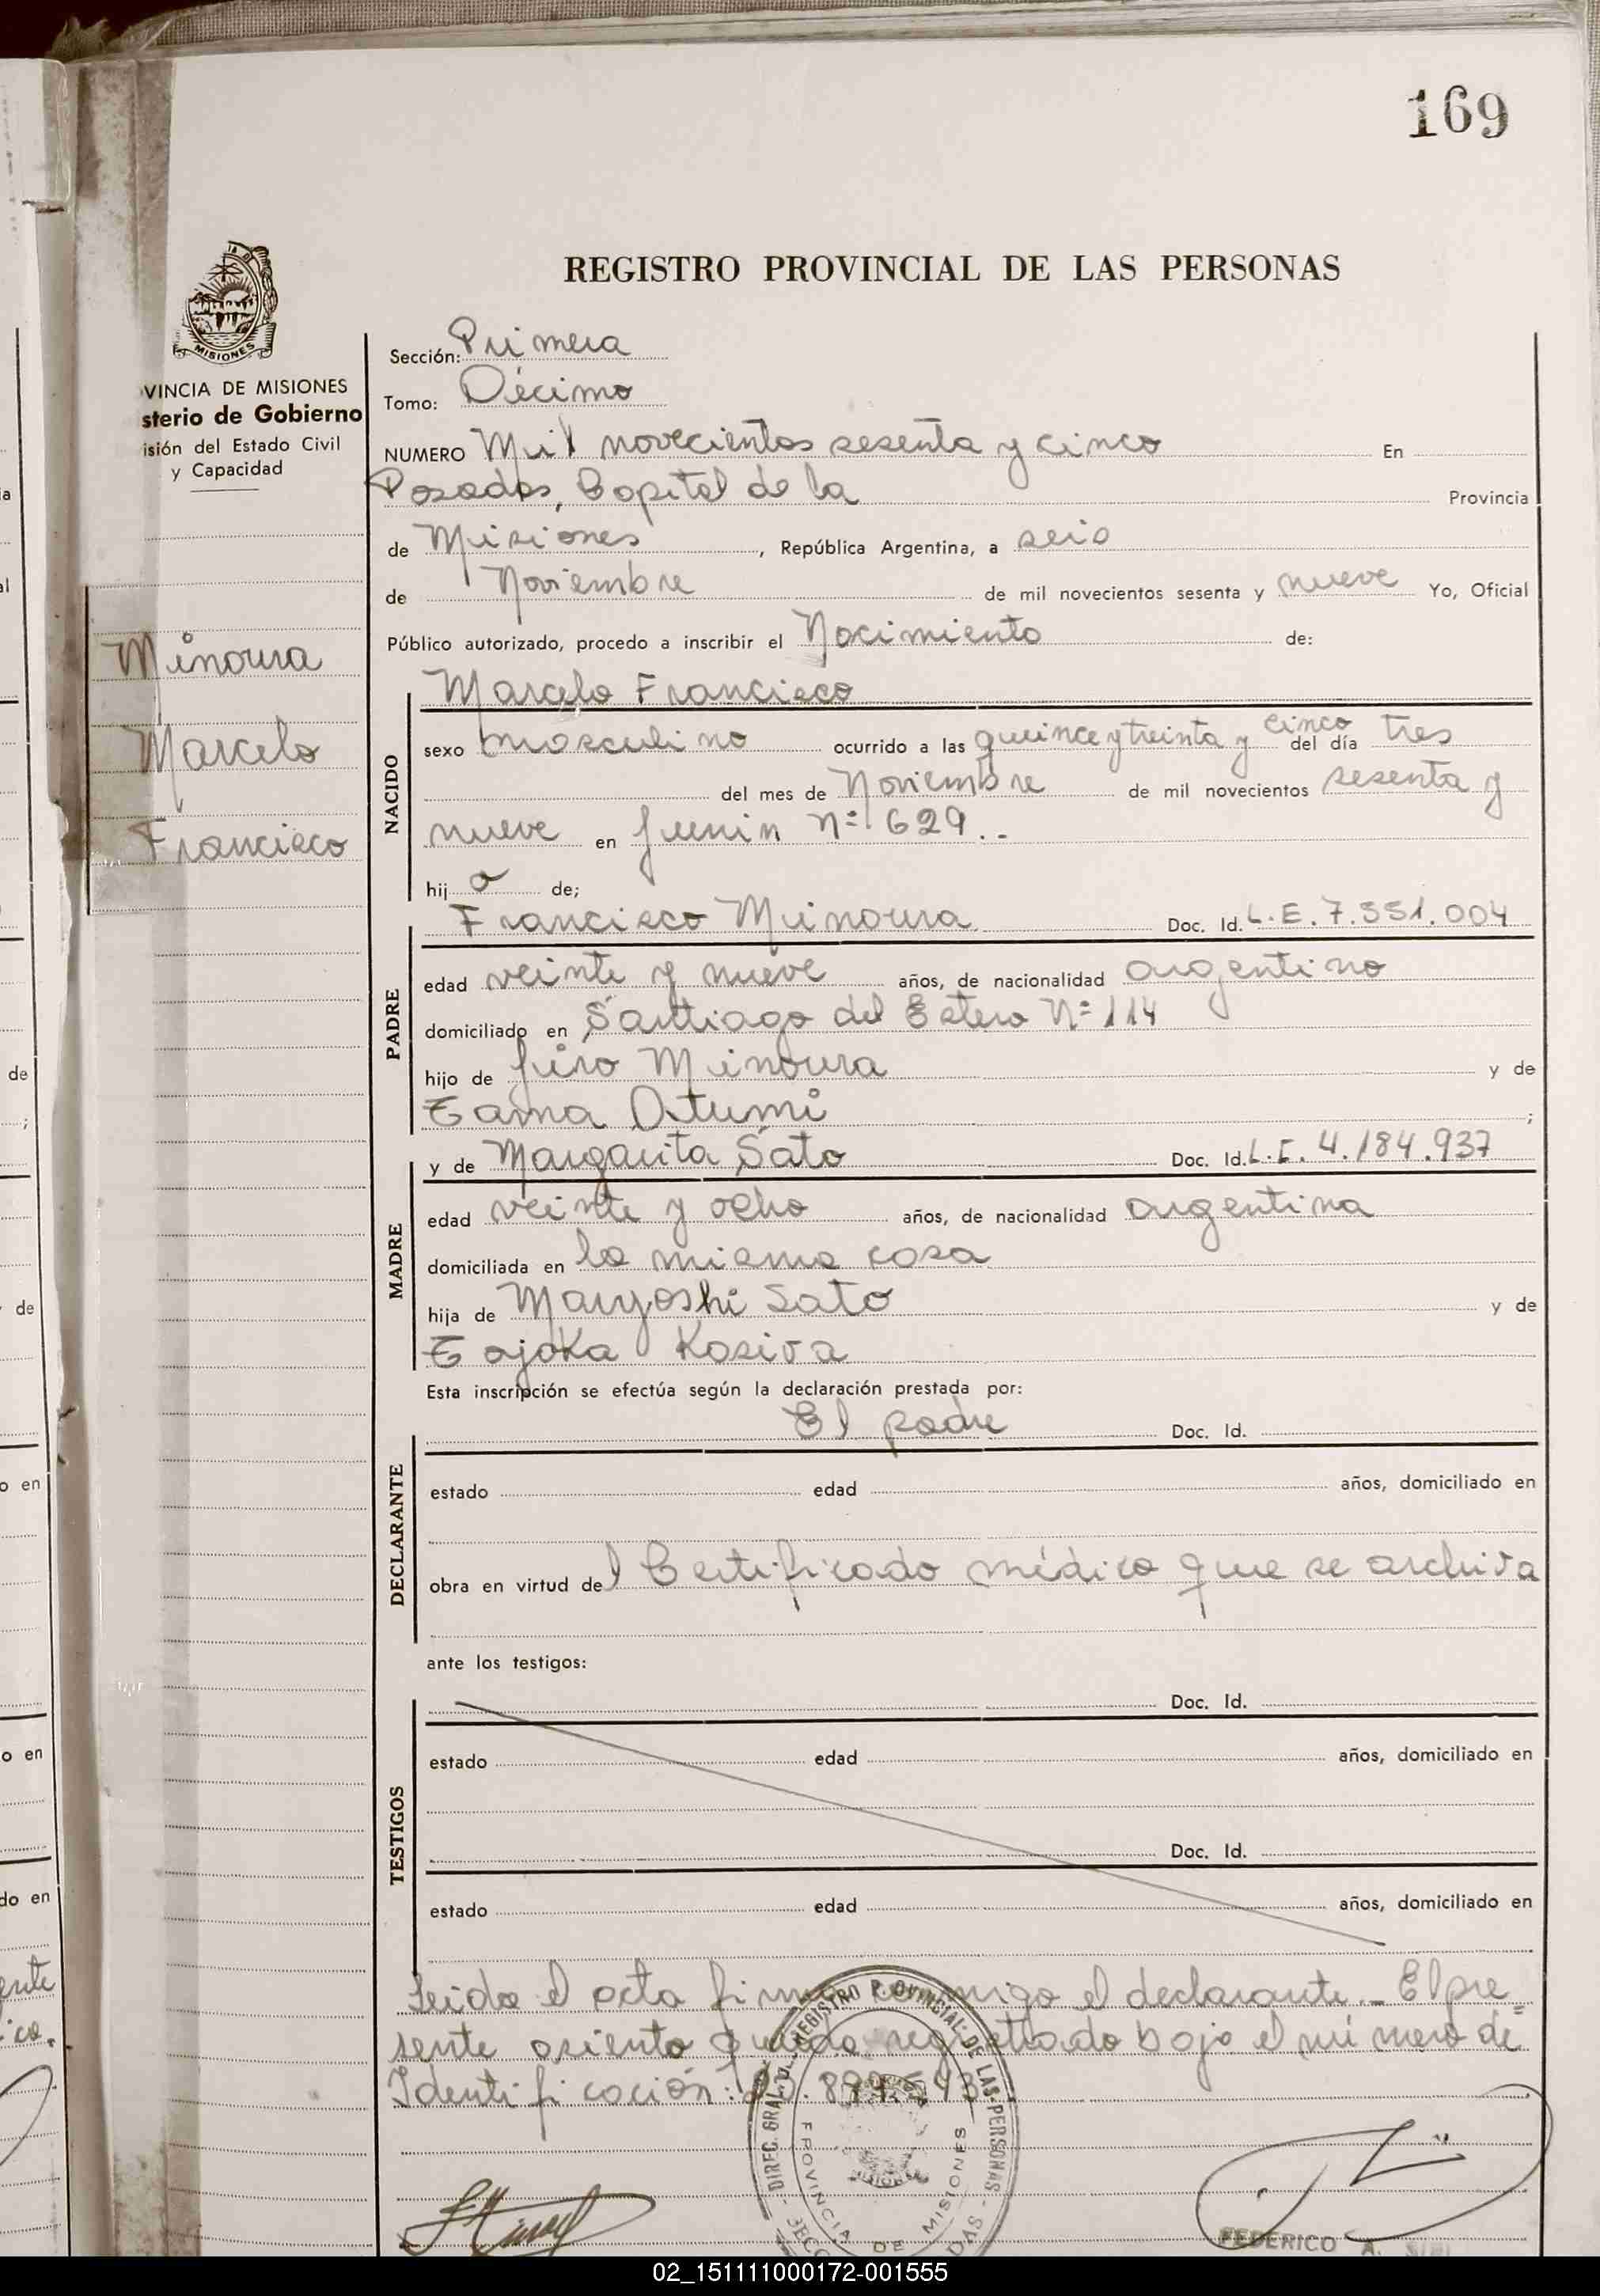 169
REGISTRO PROVINCIAL DE LAS PERSONAS
MISIONES
VINCIA DE MISIONES
sterio de Gobierno
isión del Estado Civil
y Capacidad
Minoura
Marcelo
Francisco
Sección: Primera
Tomo: Décimo
NUMERO Mil novecientos sesenta y cinco En
Posadas, Capital de la Provincia
de Misiones, República Argentina, a seis
de Noviembre de mil novecientos sesenta y nueve Yo, Oficial
Público autorizado, procedo a inscribir el Nacimiento de:
Marcelo Francisco
NACIDO
sexo masculino ocurrido a las quince y treinta y cinco del día tres
del mes de Noviembre de mil novecientos sesenta y
nueve en Junin Nº 629..
hij o de;
Francisco Minoura Doc. Id. L.E. 7.551.004
PADRE
edad veinte y nueve años, de nacionalidad argentino
domiciliado en Santiago del Estero Nº 114
hijo de Jiro Minoura y de
Tama Otumi ;
y de Margarita Sato Doc. Id. L.C. 4.184.937
MADRE
edad veinte y ocho años, de nacionalidad argentina
domiciliada en la misma casa
hija de Maryoshi Sato y de
Tajoka Kosiva
Esta inscripción se efectúa según la declaración prestada por:
El padre Doc. Id.
DECLARANTE
estado edad años, domiciliado en
obra en virtud del Certificado médico que se archiva
ante los testigos:
Doc. Id.
TESTIGOS
estado edad años, domiciliado en
Doc. Id.
estado edad años, domiciliado en
Leida el acta firma conmigo el declarante._ El pre=
sente asiento queda registrado bajo el número de
Identificación:
DIREC. GRAL. DEL REGISTRO PROVINCIAL DE LAS PERSONAS
PROVINCIA DE MISIONES
FEDERICO A.
02_151111000172-001555
ente
ico.
de
de
o en
o en
do en